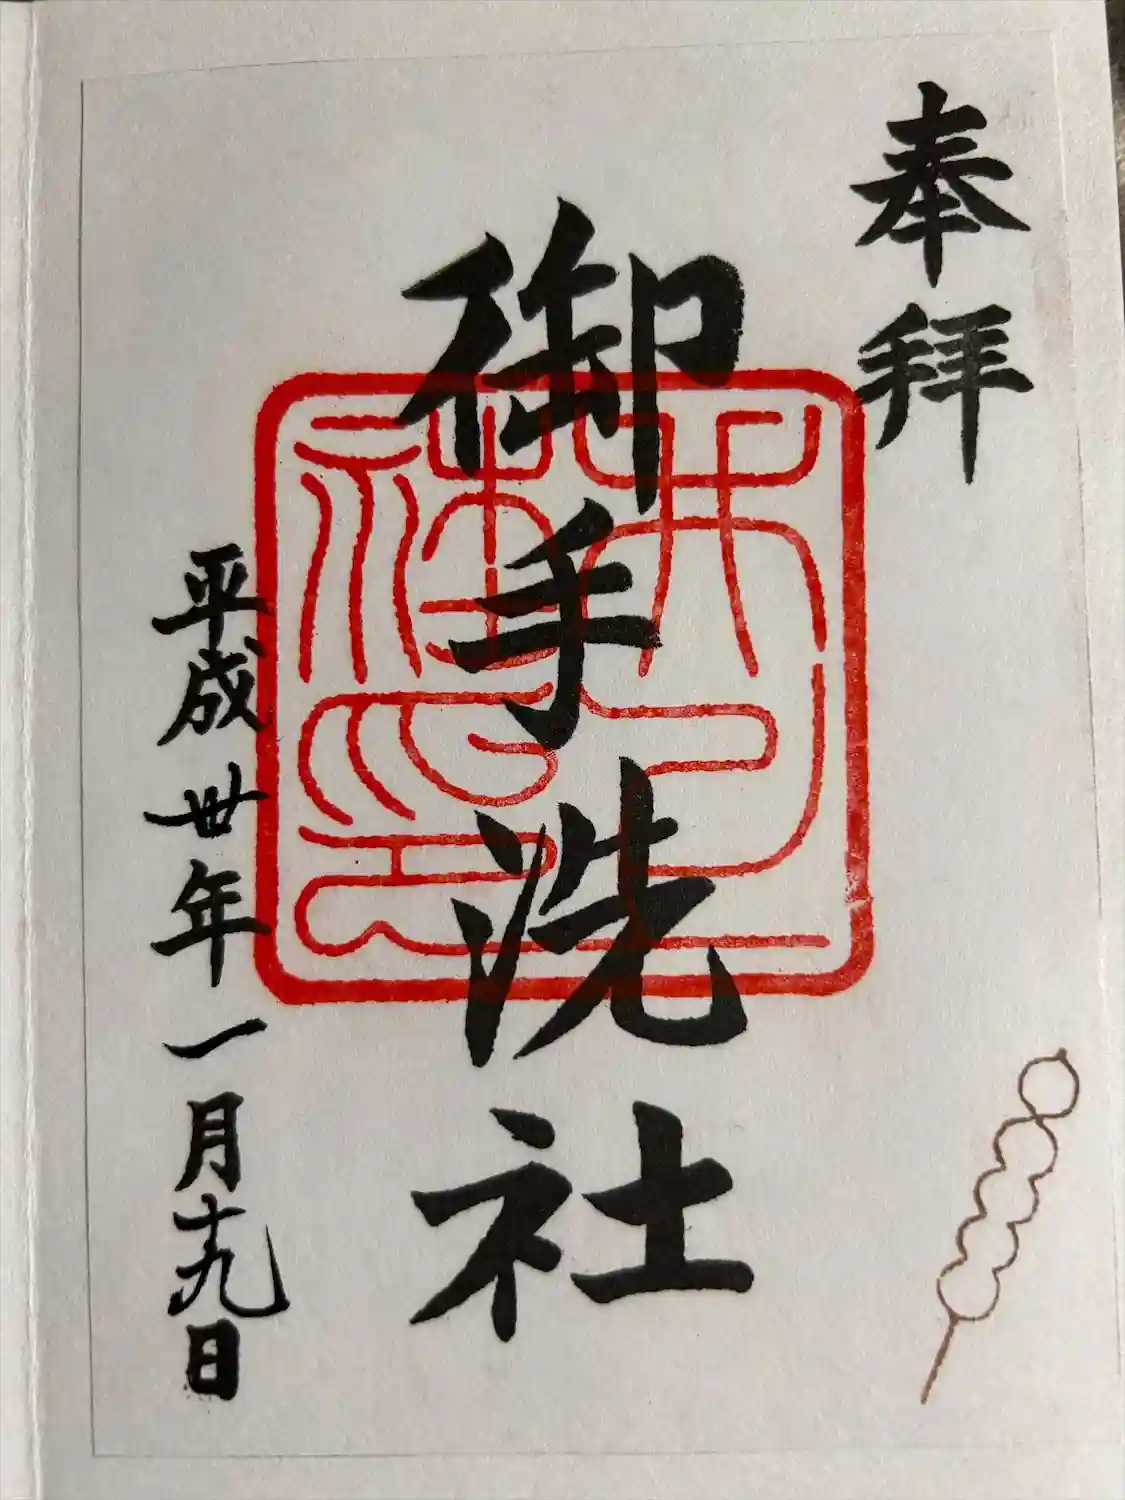 奉拝
御手洗社
平成丗年一月十九日